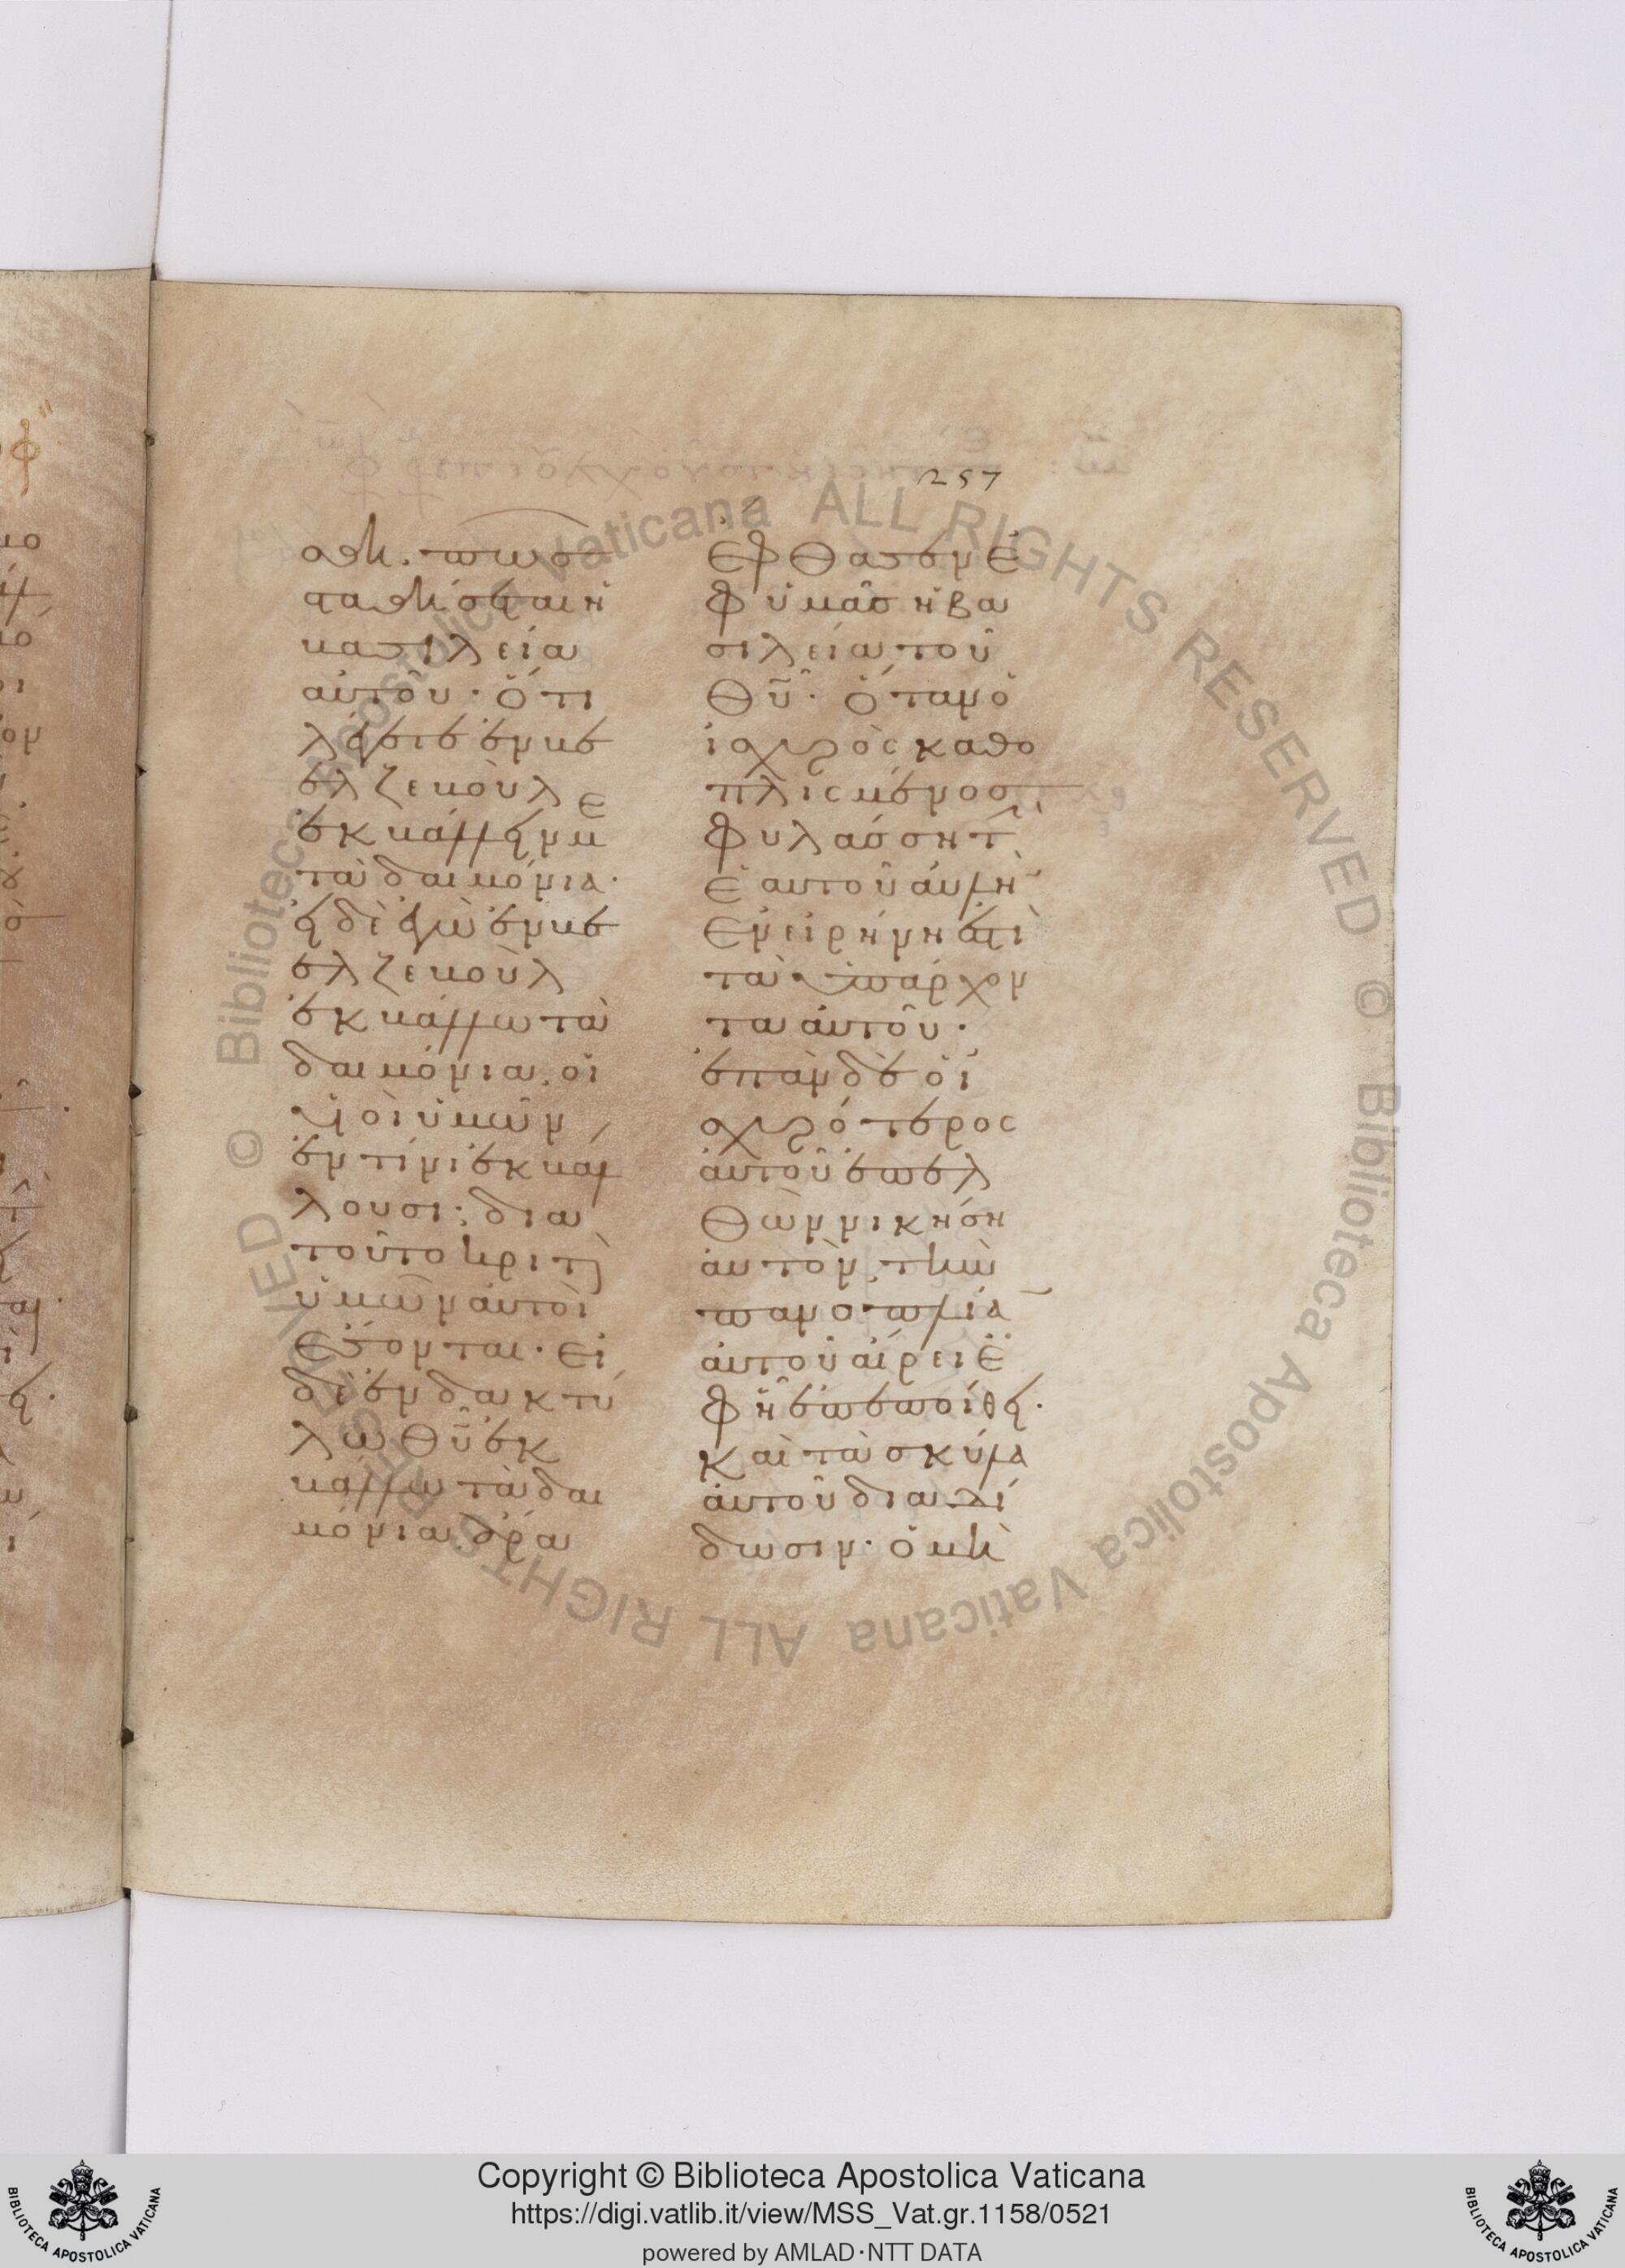 257
σθη· πῶς
σταθήσεται ἡ
βασιλεία
αὐτοῦ· ὅτι
λέγετε ἐν βε
ελζεβοὺλ
ἐκβάλλειν με
τὰ δαιμόνια·
εἰ δὲ ἐγὼ ἐν βε
ελζεβοὺλ
ἐκβάλλω τὰ
δαιμόνια. οἱ
υἱοὶ ὑμῶν
ἐν τίνι ἐκβάλ
λουσι; διὰ
τοῦτο κριταὶ
ὑμῶν αὐτοὶ
ἔσονται· εἰ
δὲ ἐν δακτύ
λω θῦ ἐκ
βάλλω τὰ δαι
μόνια. ἄρα
ἔφθασεν ἐ
φ ὑμᾶς ἡ βα
σιλεία τοῦ
θῦ· ὅταν ὁ
ἰσχυρὸς καθο
πλισμένος
φυλάσση τὴν
ἑαυτοῦ αὐλὴν
ἐν εἰρήνη ἐστὶ
τὰ ὑπάρχον
τα αὐτοῦ·
ἐπὰν δὲ ὁ ἰ
σχυρότερος
αὐτοῦ ἐπελ
θὼν νικήση
αὐτὸν, τὴν
πανοπλίαν
αὐτοῦ αἴρει ἐ
φ ἧ ἐπεποίθει·
καὶ τὰ σκῦλα
αὐτοῦ διαδί
δωσιν· ὁ μὴ
© Biblioteca Apostolica Vaticana ALL RIGHTS RESERVED © Biblioteca Apostolica Vaticana ALL RIGHTS RESERVED
Copyright © Biblioteca Apostolica Vaticana
https://digi.vatlib.it/view/MSS_Vat.gr.1158/0521
powered by AMLAD·NTT DATA
BIBLIOTECA APOSTOLICA VATICANA
BIBLIOTECA APOSTOLICA VATICANA